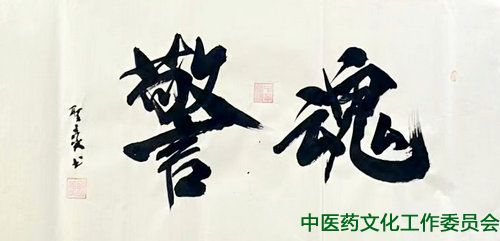 警魂
中医药文化工作委员会